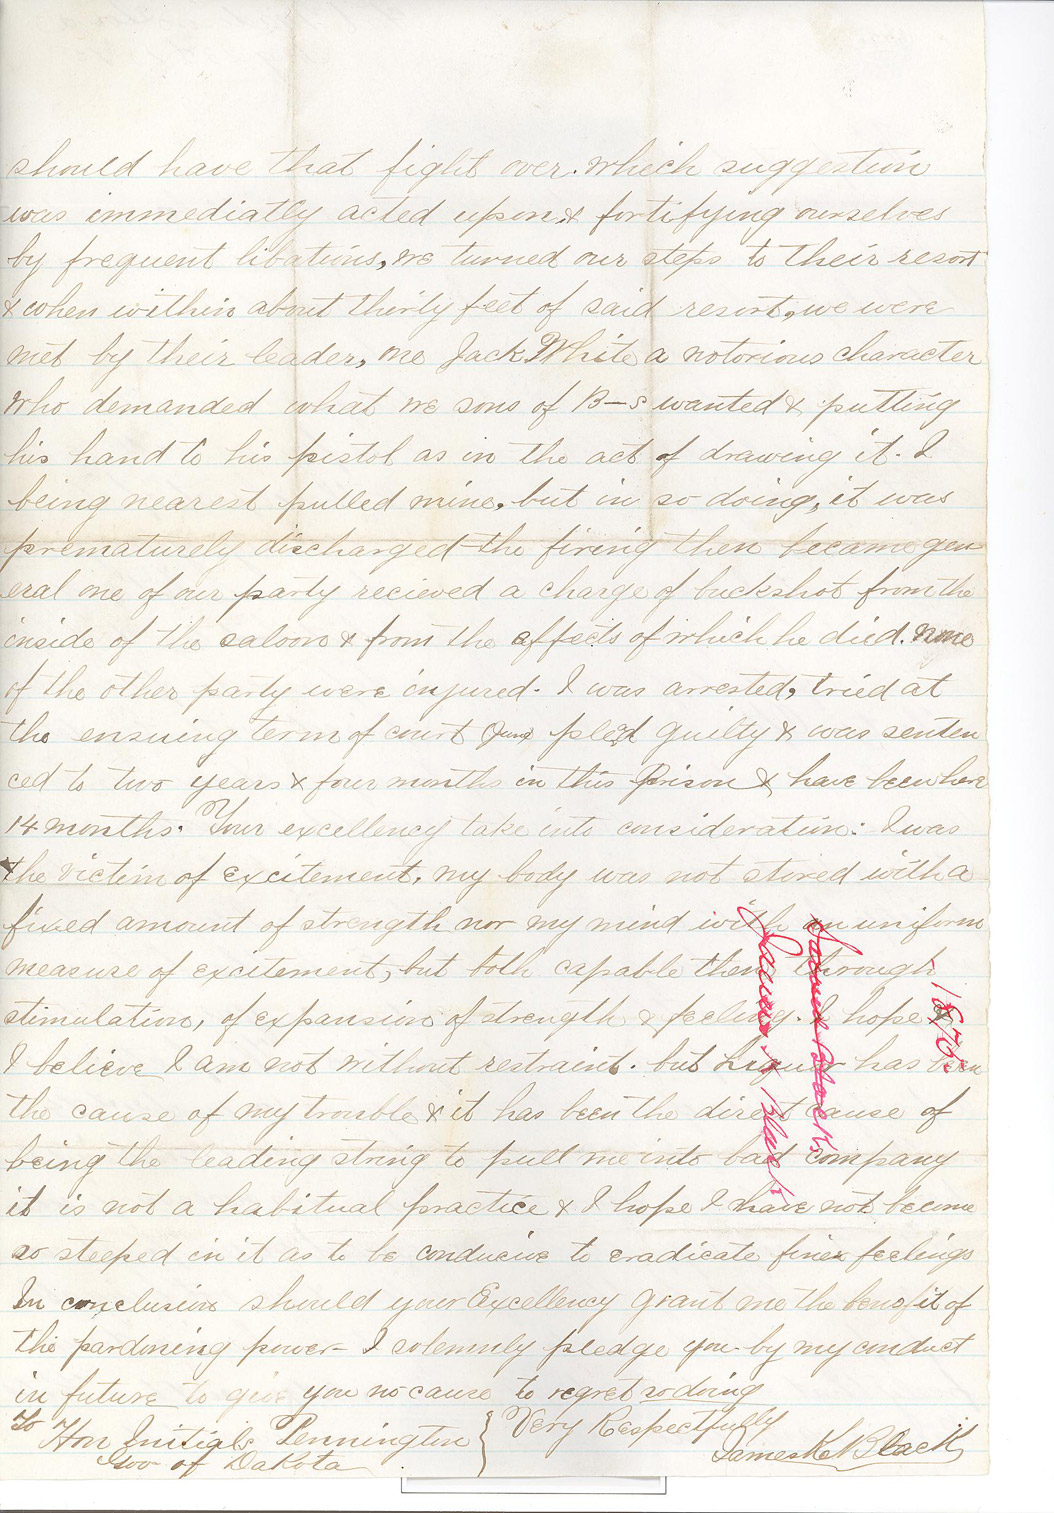 should have that fight over. which suggestion
was immediatly acted upon, & fortifying ourselves
by frequent libations, we turned our steps to their resort
& when within about thirty feet of said resort, we were
met by their leader, one Jack White a notorious character
who demanded what we sons of B–s wanted & putting
his hand to his pistol as in the act of drawing it. I
being nearest pulled mine, but in so doing, it was
prematurely discharged the firing then became gen
eral one of our party recieved a charge of buckshot from the
inside of the saloon & from the effects of which he died. none
of the other party were injured. I was arrested, tried at
the ensuing term of court June pled guilty & was senten
ced to two years & four months in this Prison & have been here
14 months. Your excellency take into consideration: I was
the victim of excitement, my body was not stored with a
fixed amount of strength nor my mind with an uniform
measure of excitement, but both capable then through
stimulation, of expansion of strength & feeling. I hope &
I believe I am not without restraint. but Liquor has been
the cause of my trouble & it has been the direct cause of
being the leading string to pull me into bad company
it is not a habitual practice & I hope I have not become
so steeped in it as to be conducive to eradicate finer feelings
In conclusion should your Excellency grant me the benefit of
the pardoning power– I solemnly pledge you by my conduct
in future to give you no cause to regret so doing
To Hon Initials Pennington { Very Respectfully
Gov of Dakota James K Black
1876
James K Black